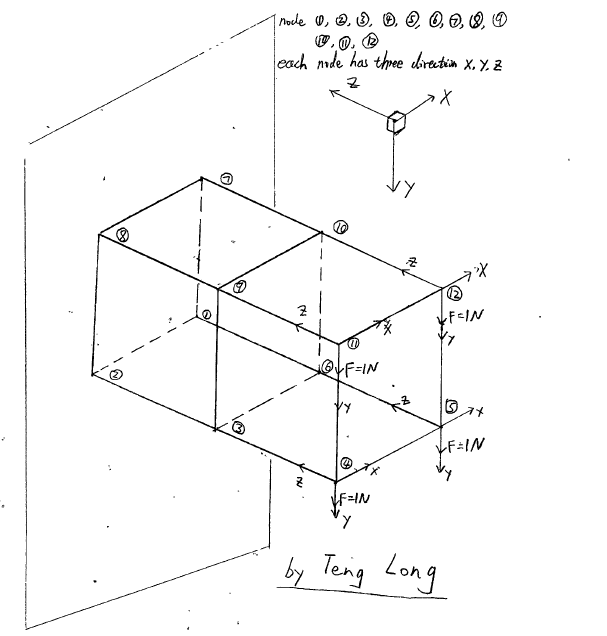 node ①, ②, ③, ④, ⑤, ⑥, ⑦, ⑧, ⑨
⑩, ⑪, ⑫
each node has three direction X, Y, Z
Z
X
Y
⑦
⑧
⑩
Z
X
⑨
⑫
①
Z
X
F=1N
Y
⑪
②
⑥
F=1N
Y
Z
⑤
X
③
④
X
F=1N
Y
Z
F=1N
Y
by Teng Long